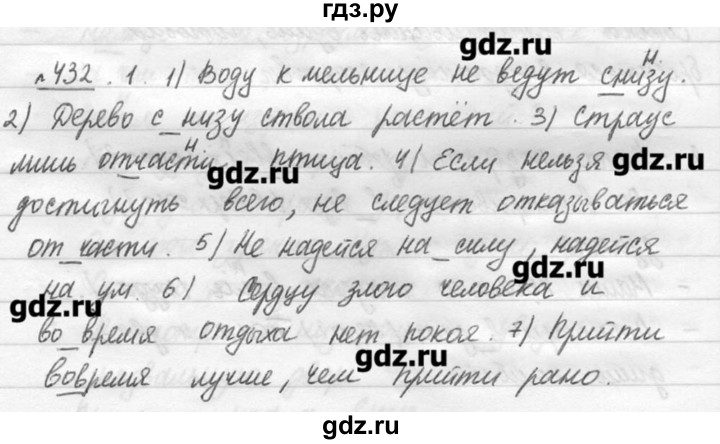 гдз.ру
gdz.ru
№432. 1. 1) Воду к мельнице не ведут снизу.
н
2) Дерево с низу ствола растёт. 3) Страус
н
лишь отчасти птица. 4) Если нельзя
gdz.ru
gdz.ru
достигнуть всего, не следует отказываться
от части. 5) Не надейся на силу, надейся
на ум. 6) Сердцу злого человека и
gdz.ru
gdz.ru
во время отдыха нет покоя. 7) Прийти
gdz.ru
вовремя лучше, чем прийти рано.
gdz.ru